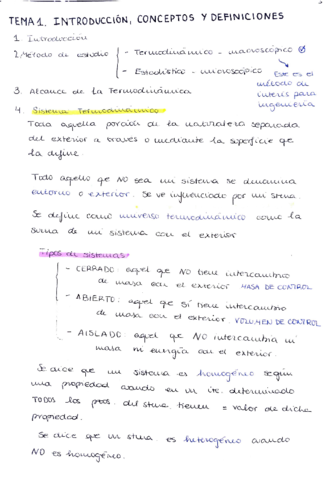 TEMA 1. INTRODUCCIÓN, CONCEPTOS Y DEFINICIONES
1. Introducción
2. Método de estudio
- Termodinámico - macroscópico
- Estadístico - microscópico
Este es el
método de
interés para
ingeniería
3. Alcance de la Termodinámica
4. Sistema Termodinámico
Toda aquella porción de la naturaleza separada
del exterior a través o mediante la superficie que
la define
Todo aquello que NO sea un sistema se denomina
entorno o exterior. Se ve influenciado por un stma.
Se define como universo termodinámico como la
suma de un sistema con el exterior
Tipos de sistemas
- CERRADO: aquel que NO tiene intercambio
de masa con el exterior MASA DE CONTROL
- ABIERTO: aquel que SÍ tiene intercambio
de masa con el exterior. VOLUMEN DE CONTROL
- AISLADO: aquel que NO intercambia ni
masa ni energía con el exterior.
Se dice que un sistema es homogéneo según
una propiedad cuando en un itc. determinado
TODOS los ptos. del stma tienen = valor de dicha
propiedad.
Se dice que un stma. es heterogéneo cuando
NO es homogéneo.